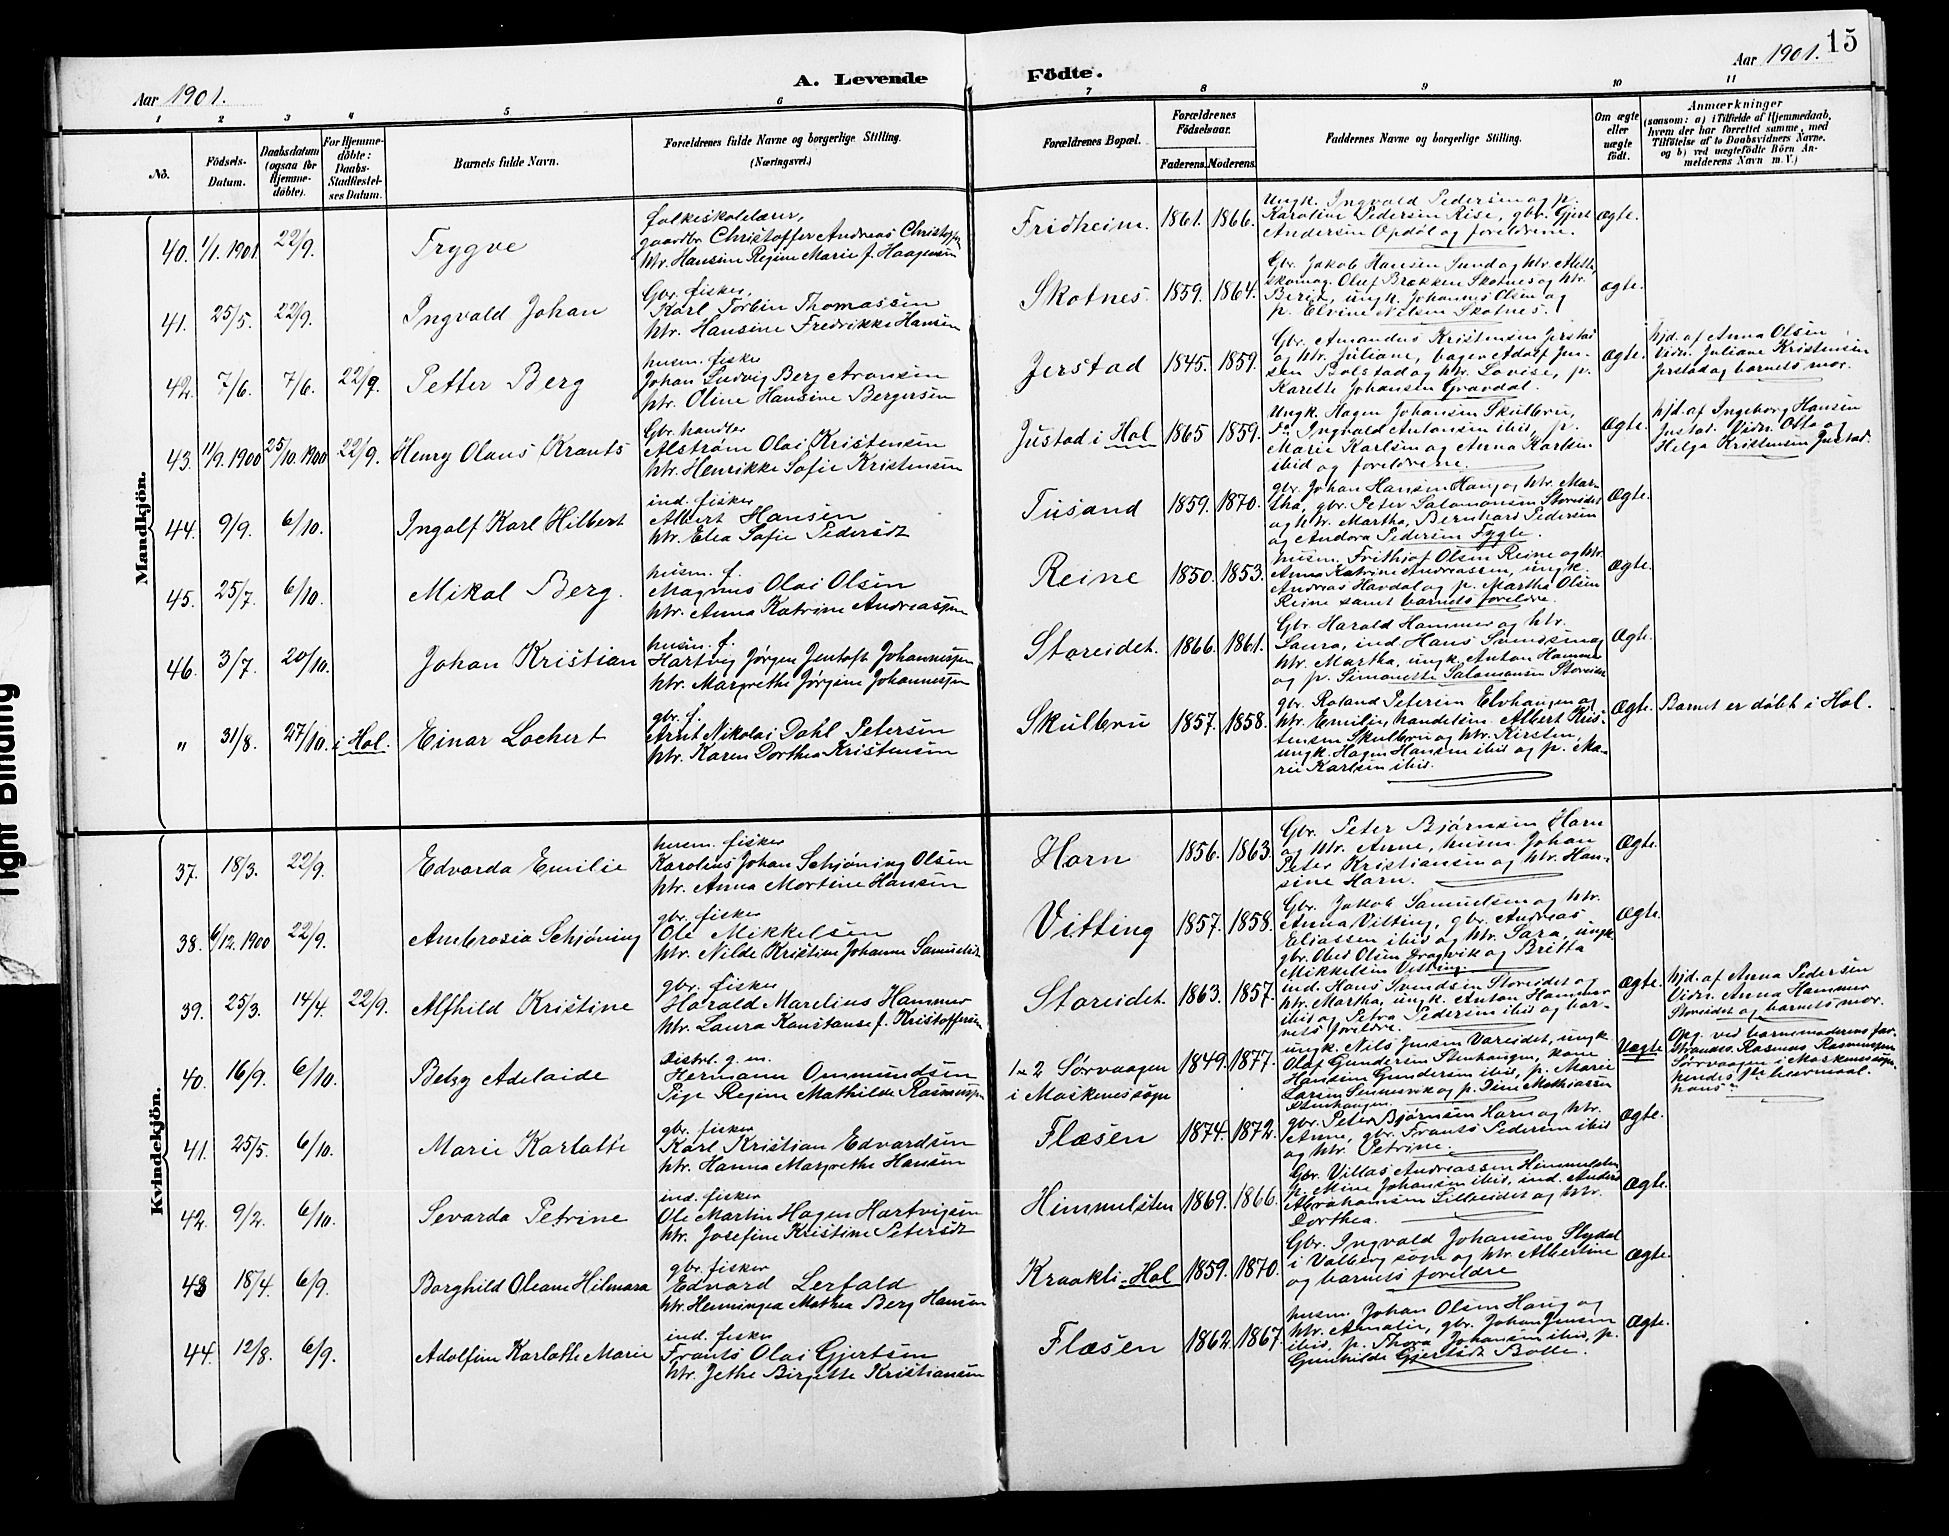 15
Aar 1901.
A. Levende Födte.
Aar 1901.
1 2 3 4 5 6 7 8 9 10 11
No.
Födsels-
Datum.
Daabsdatum
(ogsaa for
Hjemme-
döbte).
For Hjemme-
döbte:
Daabs-
Stadfæstel-
ses Datum.
Barnets fulde Navn.
Forældrenes fulde Navne og borgerlige Stilling.
(Næringsvei.)
Forældrenes Bopæl.
Forældrenes
Födselsaar.
Faderens. Moderens.
Faddernes Navne og borgerlige Stilling.
Om ægte
eller
uægte
födt.
Anmærkninger
(saasom: a) i Tilfælde af Hjemmedaab,
hvem der har forrettet samme, med
Tilföielse af to Daabsvidners Navne.
og b) ved uægtefödte Börn An-
melderens Navn m. V.)
Mandkjön.
40. 1/1. 1901 22/9. Trygve
folkeskolelærer,
gaardbr. Christoffer Andreas Christoffersen
htr. Hansine Regine Marie f. Haagensen
Fridheim. 1861. 1866.
Ungk. Ingvald Pedersen og p.
Karoline Pedersen Rise, gbr. Gjert
Andersen Opdøl og foreldrene.
Ægte.
41. 25/5. 22/9. Ingvald Johan
Gbr. fisker,
Karl Torbin Thomassen
htr. Hansine Fredrikke Hansen
Skotnes. 1859. 1864.
Gbr. Jakob Hansen Sund og htr. Alette,
skomag. Oluf Brækken Skotnes og htr.
Berit, ungk. Johannes Olsen og
p. Elvine Nilsen Skotnes.
Ægte.
42. 7/6. 7/6. 22/9. Petter Berg
husm. fisker
Johan Ludvig Berg Aronsen
htr. Oline Hansine Bergersen
Jerstad 1845. 1859.
Gbr. Amandus Kristensen Jerstad
og htr. Juliane, bager Adolf Jen-
sen Bolstad og htr. Lovise, p.
Karette Johansen Gravdal.
Ægte.
hjd. af Anna Olsen
Vidn. Juliane Kristensen
Jerstad og barnets mor.
43. 11/9. 1900 25/10. 1900 22/9. Henry Olaus Krants
Gbr. handler
Alstrøm Olai Kristensen
htr. Henrikke Sofie Kristensen
Justad i Hol 1865 1859.
Ungk. Hagen Johansen Skulbru,
do Ingvald Antonsen ibid, p.
Marie Karlsen og Anna Karlsen
ibid og foreldrene.
Ægte.
hjd. af Ingeborg Hansen
Justad. Vidn. Otto og
Helga Kristensen Justad.
44. 9/9. 6/10. Ingolf Karl Hilbert
ind. fisker
Albert Hansen
htr. Elea Sofie Pedersdt
Tusand 1859. 1870.
gbr. Johan Hansen Haug og htr. Mar-
tha, gbr. Peter Salomonsen Storeidet
og htr. Martha, Bernhard Pedersen
og Andora Pedersen Fygle.
Ægte.
45. 25/7. 6/10. Mikal Berg.
husm. f.
Magnus Olai Olsen
htr. Anna Katrine Andreassen
Reine 1850. 1853.
husm. Frithjof Olsen Reine og htr.
Anna Katrine Andreassen, ungk.
Andreas Havdal og p. Martha Olsen
Reine samt barnets foreldre.
Ægte.
46. 3/7. 20/10. Johan Kristian
husm. f.
Hartvig Jørgen Jentoft Johannessen
htr. Margrethe Jørgine Johannessen
Storeidet. 1866. 1861.
Gbr. Harald Hammer og htr.
Laura, ind Hans Svendsen og
htr. Martha, ungk. Anton Hammer
og p. Simonette Salomonsen Storeidet
Ægte.
" 31/8. 27/10. i Hol. Einar Lochert
gbr. f.
Arnt Nikolai Dahl Petersen
htr. Karen Dorthea Kristensen
Skulbru 1857. 1858.
gbr. Roland Petersen Elvhaugen og
htr. Emilie, handelsm. Albert Kris-
tensen Skulbru og htr. Kirsten,
ungk. Hagen Hansen ibid og p. Ma-
rie Karlsen ibid.
Ægte. Barnet er døbt i Hol.
Kvindekjön.
37. 18/3. 22/9. Edvarda Emilie
husm. fisker
Karolius Johan Schjøning Olsen
htr. Anna Mortine Hansen
Horn 1856. 1863.
Gbr. Peter Bjørnsen Horn
og htr. Anne, husm. Johan
Peter Kristiansen og htr. Han-
sine Horn.
Ægte.
38. 6/12. 1900 22/9. Ambrosia Schjøning
gbr. fisker
Ole Mikkelsen
htr. Nilde Kristine Johanne Samuelsdt.
Vitting 1857. 1858.
Gbr. Jakob Samuelsen og htr.
Anna Vitting, gbr. Andreas
Eliassen ibid og htr. Sara, ungk.
gbr. Obed Olsen Dragvik og Britta
Mikkelsen Vitting.
Ægte.
39. 25/3. 14/4. 22/9. Alfhild Kristine
gbr. fisker
Harald Marelius Hammer
htr. Laura Konstanse f. Kristoffersen
Storeidet. 1863. 1857.
ind. Hans Svendsen Storeidet og
htr. Martha, ungk. Anton Hammer
ibid og Petra Pedersen ibid og bar-
nets foreldre.
Ægte.
hjd. af Anna Pedersen
Vidn. Anna Hammer
Storeidet og barnets mor.
40. 16/9. 6/10. Betzy Adelaide
Distrl. g. m.
Hermann Ommundsen
Pige Regine Mathilde Rasmussen
1-2 Sørvaagen
i Moskenes sogn
1849. 1877.
ungk. Nils Jensen Vareidet, ungk
Olaf Gundersen Stenhaugen, kone
Hansine Gundersen ibid, p. Marie
Larsen Sennesvik og p. Dine Mathiassen
Stenhaugen.
Uægte
Opg. ved barnemoderens far
Strands. Rasmus Rasmussen
Sørvaagen i Moskenes sogn.
hendes 1ste leiermaal.
hans " "
41. 25/5. 6/10. Marie Karlotte
gbr. fisker
Karl Kristian Edvardsen
htr. Hanna Margrethe Hansen
Flæsen 1874. 1872.
gbr. Peter Bjørnsen Horn og htr.
Anne, gbr. Frants Pedersen ibid
og htr. Petrine.
Ægte.
42. 9/2. 6/10. Sevarda Petrine
ind. fisker
Ole Martin Hagen Hartvigsen
htr. Josefine Kristine Petersdt
Himmelsten 1869. 1866.
Gbr. Villas Andreassen Himmelsten,
p. Mine Johansen ibid, ind. Anders
Abrahamsen Lilleeidet og htr.
Dorthea.
Ægte.
43 18/4. 6/9. Borghild Oleane Hilmara
gbr. fisker
Edvard Lerfald
htr. Henningea Mathea Berg Hansen
Kraakli-Hol 1859. 1870.
Gbr. Ingvald Johansen Slydal
i Valberg sogn og htr. Albertine
og barnets foreldre
Ægte.
44. 12/8. 6/9. Adolfine Karlotte Marie
ind. fisker
Frants Olai Gjertsen
htr. Jethe Birgitte Kristiansen
Flæsen 1862. 1867.
husm. Johan Olsen Haug og
htr. Amalie, gbr. Johan Jensen
ibid, p. Thora Johansen ibid, p.
Gunhilde Gjertsdt Bolle.
Ægte.
Tight Binding